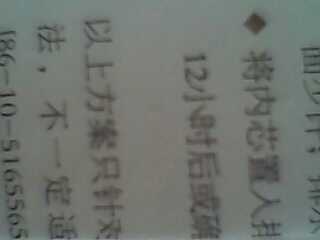 ◆ 将内芯置入
12小时后或
以上方案只针对
法，不一定适
(86-10-5165565